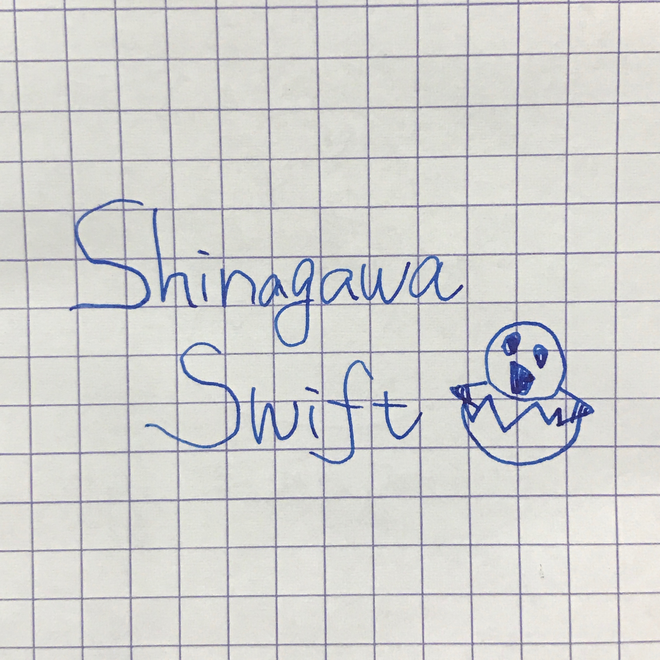 Shinagawa
Swift